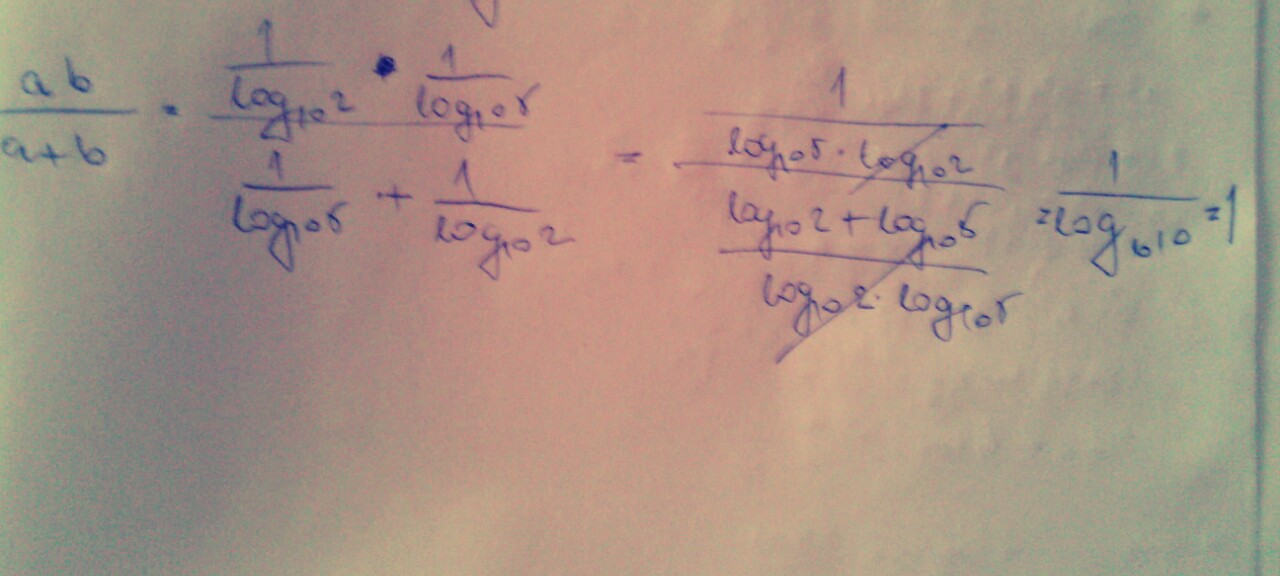 ab / a+b = (1 / log₁₀2 · 1 / log₁₀5) / (1 / log₁₀5 + 1 / log₁₀2) = (1 / log₁₀5 · log₁₀2) / (log₁₀2 + log₁₀5 / log₁₀2 · log₁₀5) = 1 / log₁₀10 = 1